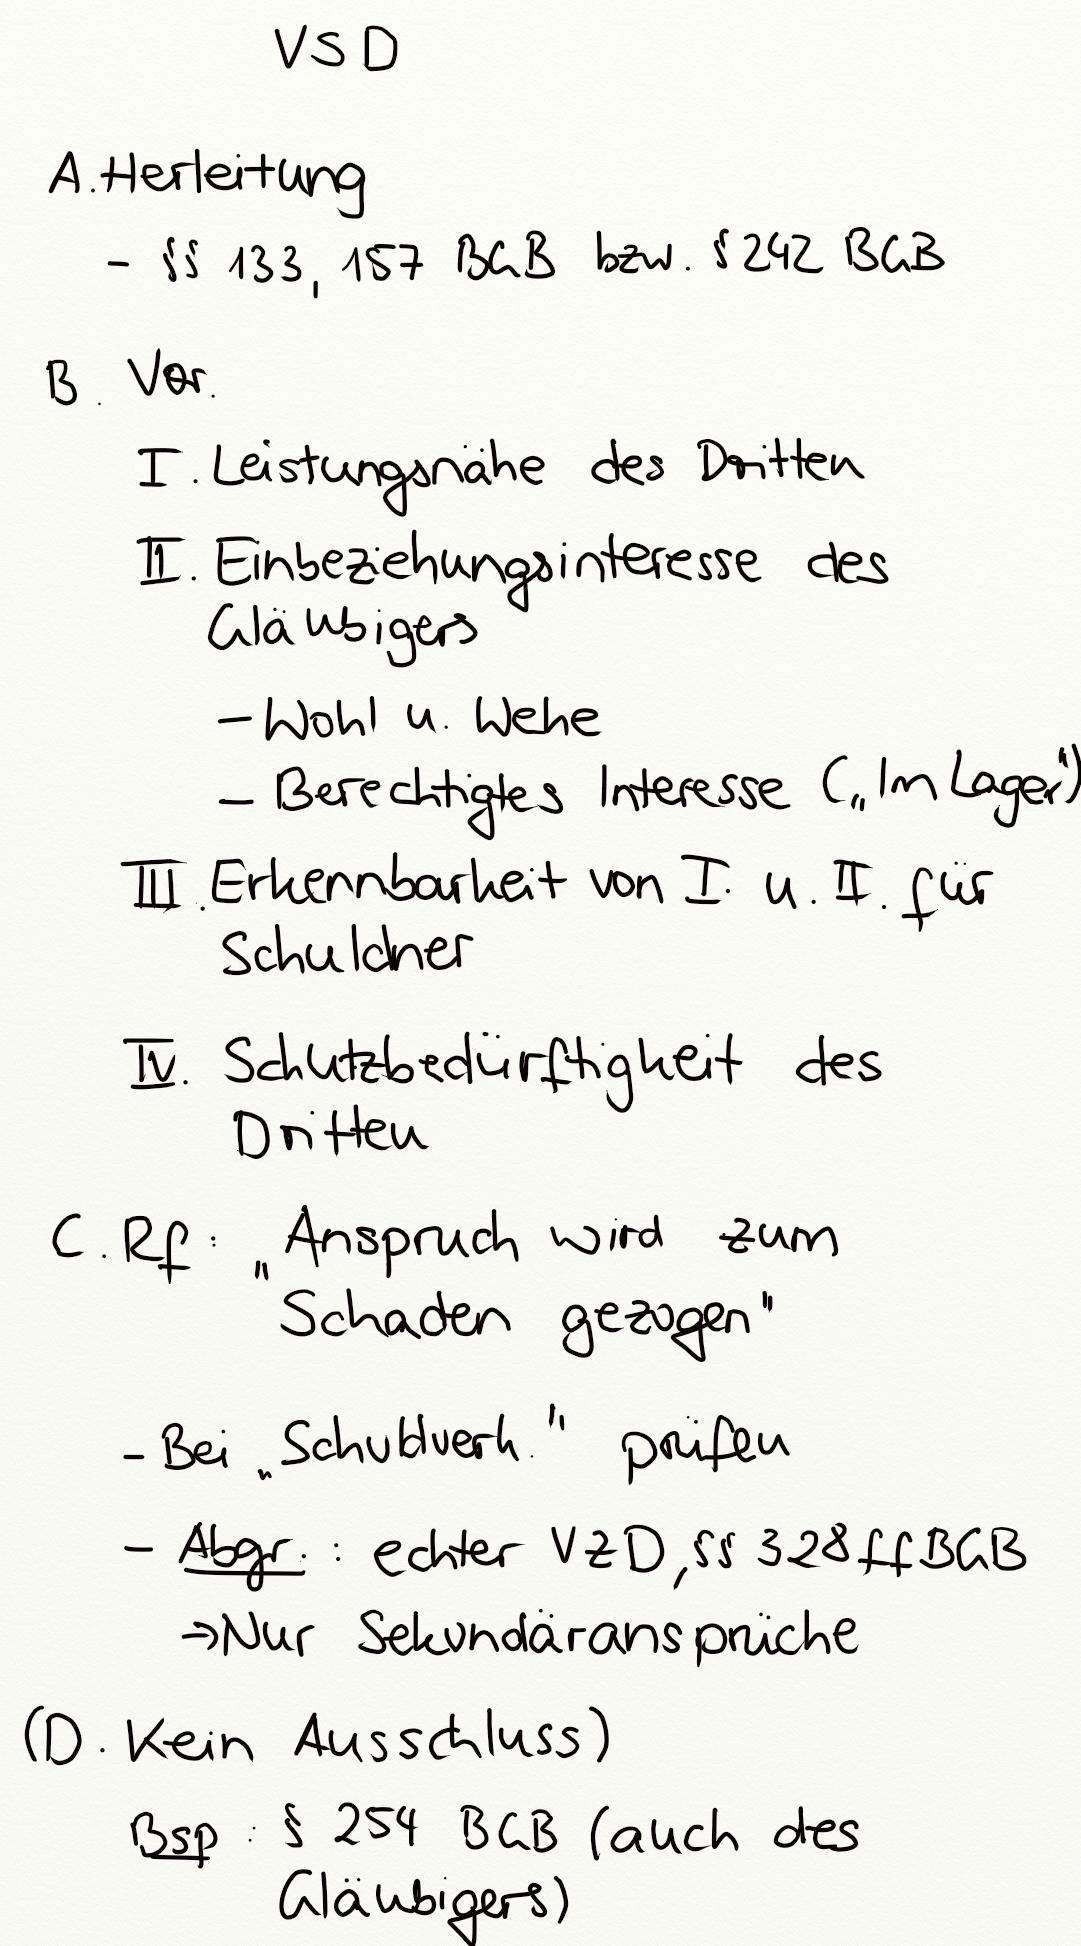 VSD
A. Herleitung
- §§ 133, 157 BGB bzw. § 242 BGB
B. Vor.
I. Leistungsnähe des Dritten
II. Einbeziehungsinteresse des
Gläubigers
- Wohl u. Wehe
- Berechtigtes Interesse („Im Lager")
III. Erkennbarkeit von I. u. II. für
Schuldner
IV. Schutzbedürftigkeit des
Dritten
C. Rf: „Anspruch wird zum
Schaden gezogen"
- Bei „Schuldverh." prüfen
- Abgr.: echter VzD, §§ 328 ff BGB
→ Nur Sekundäransprüche
(D. Kein Ausschluss)
Bsp: § 254 BGB (auch des
Gläubigers)